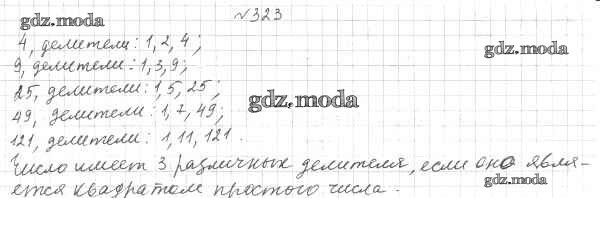 №323
gdz.moda
4, делители: 1, 2, 4;
gdz.moda
9, делители: 1, 3, 9;
25, делители: 1, 5, 25;
gdz.moda
49, делители: 1, 7, 49;
121, делители: 1, 11, 121.
Число имеет 3 различных делителя, если оно явля-
gdz.moda
ется квадратом простого числа.